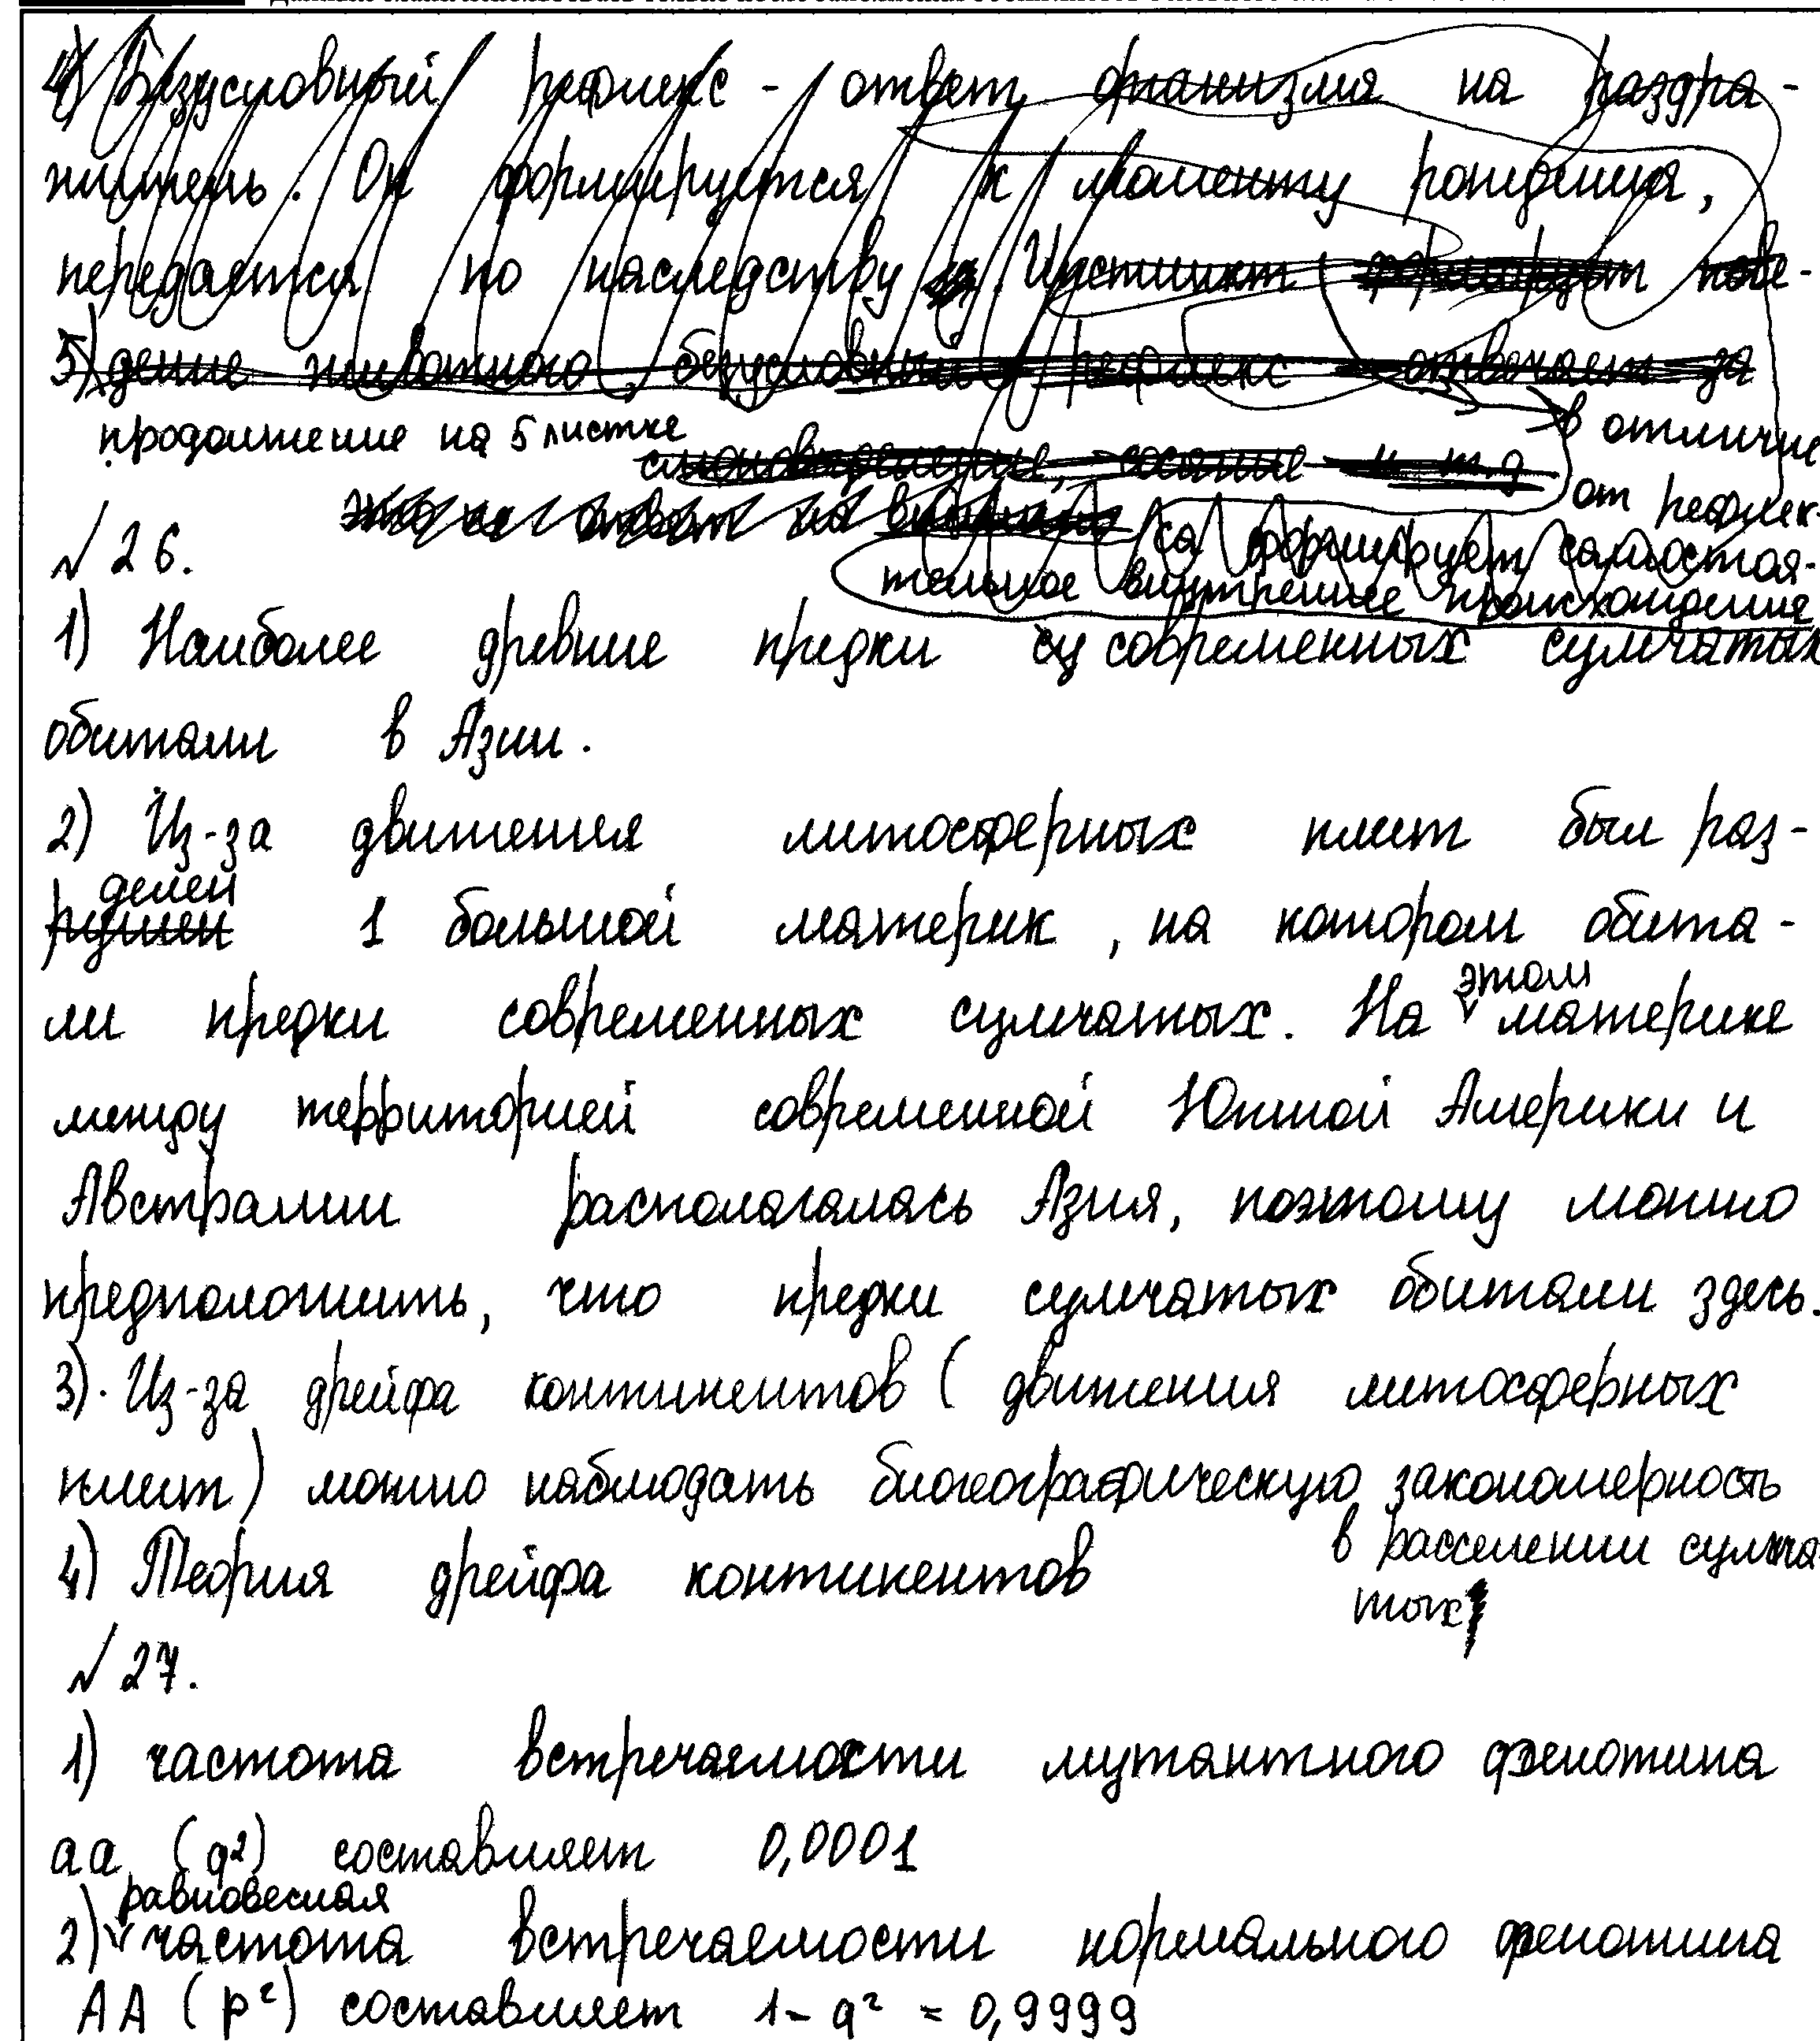 4) Безусловный рефлекс - ответ организма на раздра-
житель. Он формируется к моменту рождения,
передается по наследству. Инстинкт формирует пове-
5) дение животного, безусловный рефлекс отвечает за
продолжение на 5 листке
слюноотделение, сосание и т.д
в отличие
от рефлек-
это не ответ на
са формирует самостоя-
тельное внутреннее происхождения
№ 26.
1) Наиболее древние предки современных сумчатых
обитали в Азии.
2) Из-за движения литосферных плит был раз-
делен
рушен 1 большой материк, на котором обита-
ли предки современных сумчатых. На этом материке
между территорией современной Южной Америки и
Австралии располагалась Азия, поэтому можно
предположить, что предки сумчатых обитали здесь.
3). Из-за дрейфа континентов (движения литосферных
плит) можно наблюдать биогеографическую закономерность
в расселении сумча
тых
4) Теория дрейфа континентов
№ 27.
1) частота встречаемости мутантного фенотипа
аа (q²) составляет 0,0001
2) равновесная частота встречаемости нормального фенотипа
АА (p²) составляет 1 - q² = 0,9999